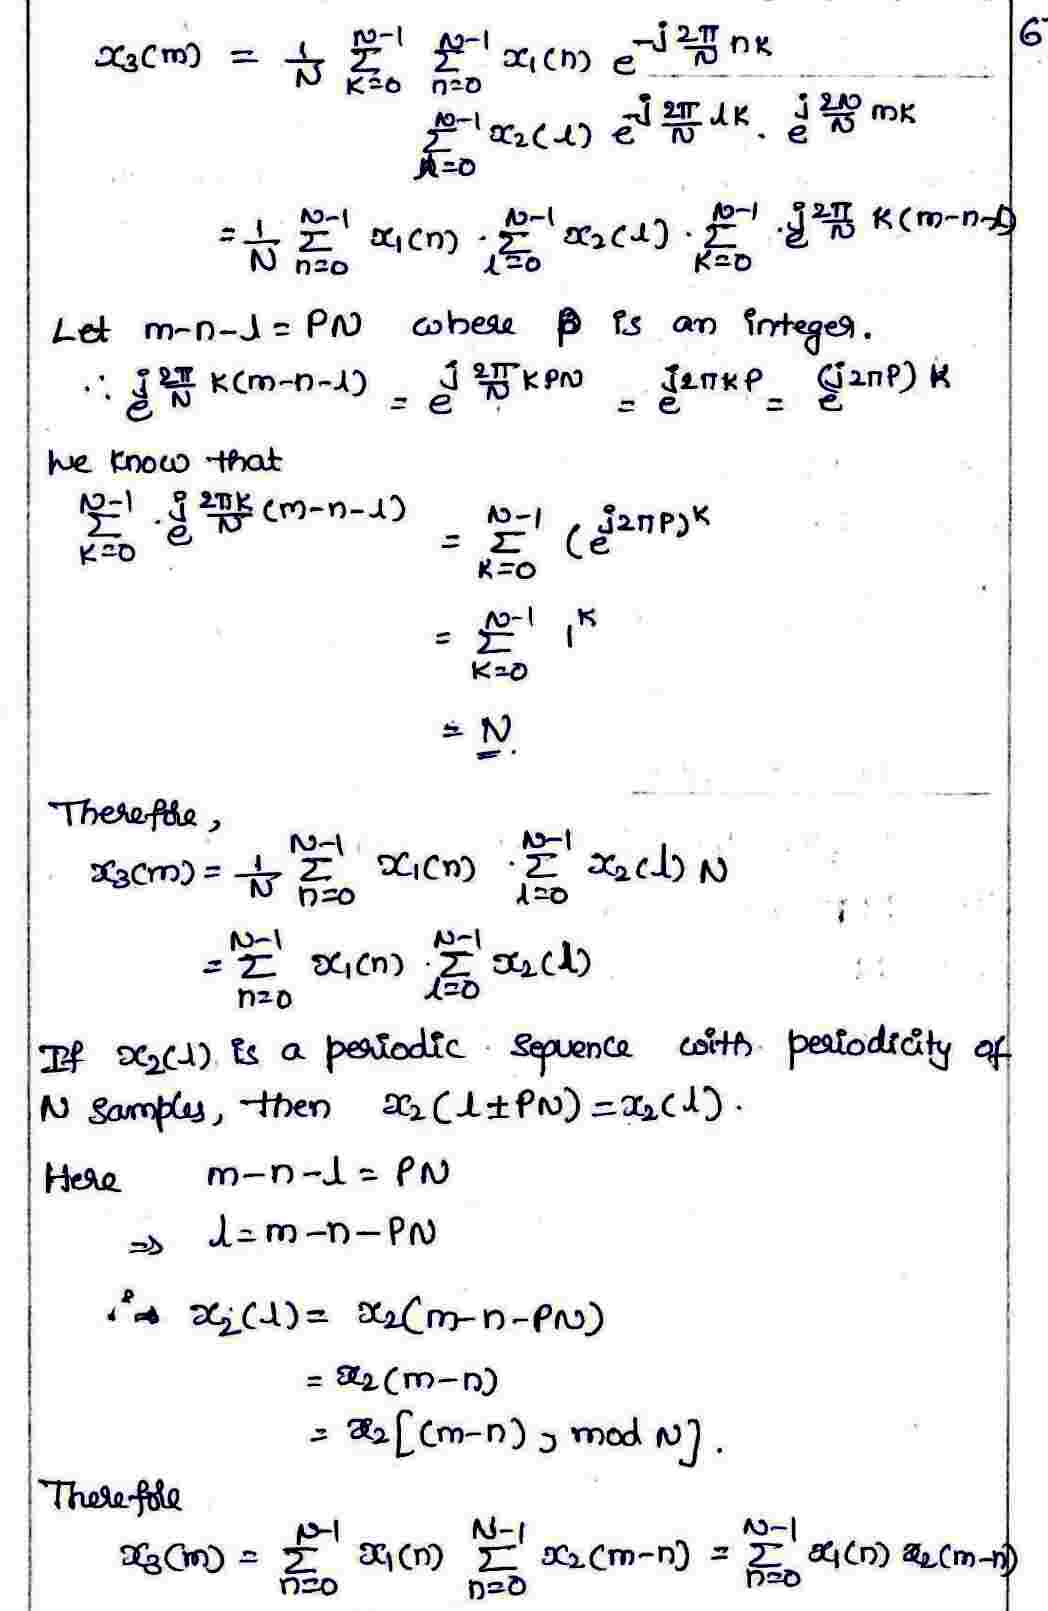 6
x₃(m) = 1/N Σ_{k=0}^{N-1} Σ_{n=0}^{N-1} x₁(n) e^{-j 2π/N nk}
Σ_{l=0}^{N-1} x₂(l) e^{-j 2π/N lk} . e^{j 2π/N mk}
= 1/N Σ_{n=0}^{N-1} x₁(n) . Σ_{l=0}^{N-1} x₂(l) . Σ_{k=0}^{N-1} . e^{j 2π/N k(m-n-l)}
Let m-n-l = PN where p is an integer.
∴ e^{j 2π/N k(m-n-l)} = e^{j 2π/N kPN} = e^{j2πkP} = e^{(j2πP)k}
We know that
Σ_{k=0}^{N-1} . e^{j 2πk/N (m-n-l)} = Σ_{k=0}^{N-1} (e^{j2πP})^k
= Σ_{k=0}^{N-1} 1^k
= N.
Therefore,
x₃(m) = 1/N Σ_{n=0}^{N-1} x₁(n) . Σ_{l=0}^{N-1} x₂(l) N
= Σ_{n=0}^{N-1} x₁(n) . Σ_{l=0}^{N-1} x₂(l)
If x₂(l) is a periodic sequence with periodicity of
N samples, then x₂(l ± PN) = x₂(l).
Here m-n-l = PN
⇒ l = m-n-PN
∴ x₂(l) = x₂(m-n-PN)
= x₂(m-n)
= x₂[(m-n), mod N].
Therefore
x₃(m) = Σ_{n=0}^{N-1} x₁(n) Σ_{n=0}^{N-1} x₂(m-n) = Σ_{n=0}^{N-1} x₁(n) x₂(m-n)